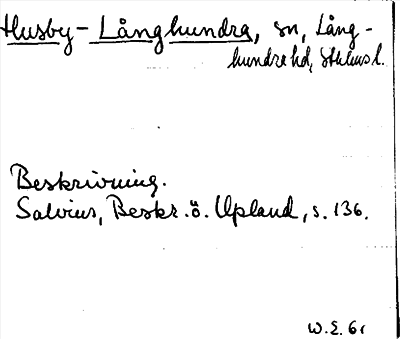 Husby-Långhundra, sn, Lång-
hundra hd, Sthlms l.
Beskrivning.
Salvius, Beskr. ö. Upland, s. 136.
W.E. 61